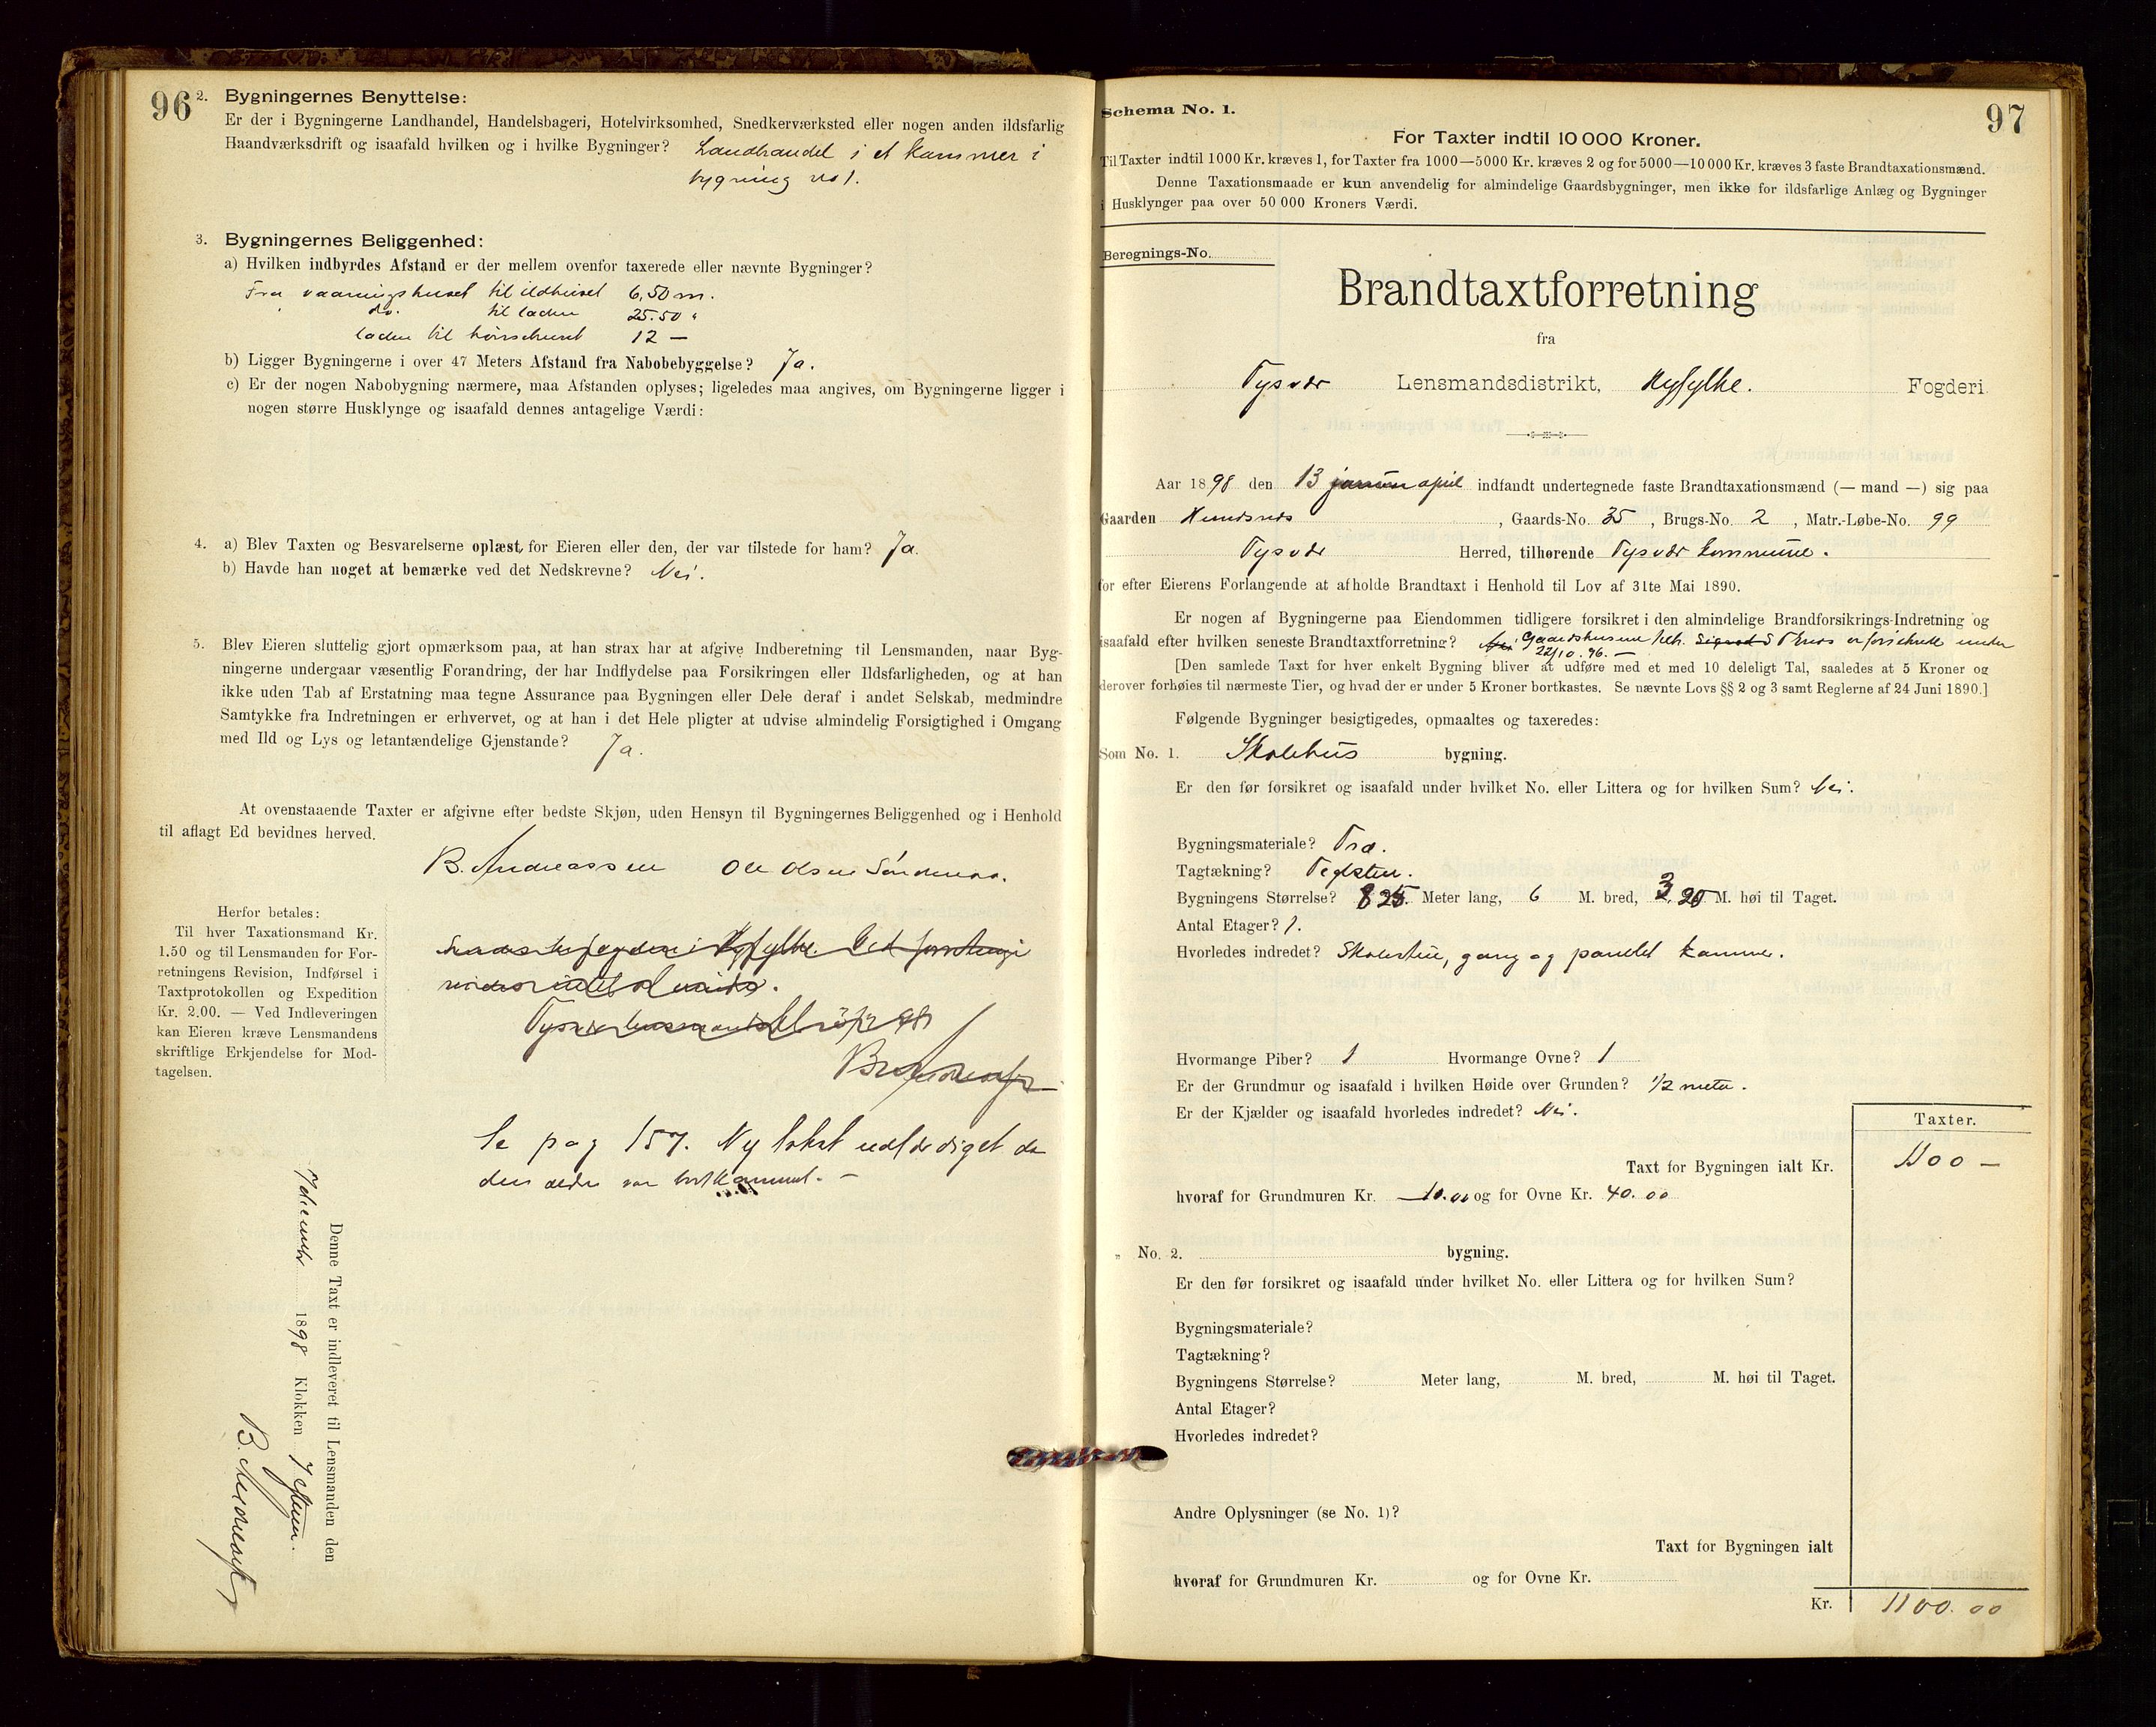 96
2. Bygningernes Benyttelse:
Er der i Bygningerne Landhandel, Handelsbageri, Hotelvirksomhed, Snedkerværksted eller nogen anden ildsfarlig
Haandværksdrift og isaafald hvilken og i hvilke Bygninger? Landhandel i et kammer i
bygning no 1.
3. Bygningernes Beliggenhed:
a) Hvilken indbyrdes Afstand er der mellem ovenfor taxerede eller nævnte Bygninger?
Fra vaaningshuset til ildhuset 6,50 m.
do. til laden 25.50 "
laden til 12 —
b) Ligger Bygningerne i over 47 Meters Afstand fra Nabobebyggelse? Ja.
c) Er der nogen Nabobygning nærmere, maa Afstanden oplyses; ligeledes maa angives, om Bygningerne ligger i
nogen større Husklynge og isaafald dennes antagelige Værdi:
4. a) Blev Taxten og Besvarelserne oplæst for Eieren eller den, der var tilstede for ham? Ja.
b) Havde han noget at bemærke ved det Nedskrevne? Nei.
5. Blev Eieren sluttelig gjort opmærksom paa, at han strax har at afgive Indberetning til Lensmanden, naar Byg-
ningerne undergaar væsentlig Forandring, der har Indflydelse paa Forsikringen eller Ildsfarligheden, og at han
ikke uden Tab af Erstatning maa tegne Assurance paa Bygningen eller Dele deraf i andet Selskab, medmindre
Samtykke fra Indretningen er erhvervet, og at han i det Hele pligter at udvise almindelig Forsigtighed i Omgang
med Ild og Lys og letantændelige Gjenstande? Ja.
At ovenstaaende Taxter er afgivne efter bedste Skjøn, uden Hensyn til Bygningernes Beliggenhed og i Henhold
til aflagt Ed bevidnes herved.
B. Andreassen Ole Olsen
Herfor betales:
Til hver Taxationsmand Kr.
1.50 og til Lensmanden for For-
retningens Revision, Indførsel i
Taxtprotokollen og Expedition
Kr. 2.00. — Ved Indleveringen
kan Eieren kræve Lensmandens
skriftlige Erkjendelse for Mod-
tagelsen.
Se pag 157. Ny takst udfærdiget da
den ældre var bortkommet. —
Denne Taxt er indleveret til Lensmanden den
7 1898 Klokken 7 efterm.
B. Andreassen
97
Schema No. 1.
For Taxter indtil 10 000 Kroner.
Til Taxter indtil 1000 Kr. kræves 1, for Taxter fra 1000—5000 Kr. kræves 2 og for 5000—10 000 Kr. kræves 3 faste Brandtaxationsmænd.
Denne Taxationsmaade er kun anvendelig for almindelige Gaardsbygninger, men ikke for ildsfarlige Anlæg og Bygninger
i Husklynger paa over 50 000 Kroners Værdi.
Beregnings-No.
Brandtaxtforretning
fra
Tysvær Lensmandsdistrikt, Ryfylke. Fogderi
Aar 1898 den 13 april indfandt undertegnede faste Brandtaxationsmænd (— mand —) sig paa
Gaarden , Gaards-No. 35 , Brugs-No. 2 , Matr.-Løbe-No. 99
Tysvær Herred, tilhørende Tysvær kommune.
for efter Eierens Forlangende at afholde Brandtaxt i Henhold til Lov af 31te Mai 1890.
Er nogen af Bygningerne paa Eiendommen tidligere forsikret i den almindelige Brandforsikrings-Indretning og
isaafald efter hvilken seneste Brandtaxtforretning? Gaardshusene er forsikrede under
22/10.96. —
[Den samlede Taxt for hver enkelt Bygning bliver at udføre med et med 10 deleligt Tal, saaledes at 5 Kroner og
derover forhøies til nærmeste Tier, og hvad der er under 5 Kroner bortkastes. Se nævnte Lovs §§ 2 og 3 samt Reglerne af 24 Juni 1890.]
Følgende Bygninger besigtigedes, opmaaltes og taxeredes:
Som No. 1. Skolehus bygning.
Er den før forsikret og isaafald under hvilket No. eller Littera og for hvilken Sum? Nei.
Bygningsmateriale? Træ.
Tagtækning? Teglsten.
Bygningens Størrelse? 8 25. Meter lang, 6 M. bred, 3,20 M. høi til Taget.
Antal Etager? 1.
Hvorledes indredet? Skolestue, gang og panelet kammer.
Hvormange Piber? 1 Hvormange Ovne? 1
Er der Grundmur og isaafald i hvilken Høide over Grunden? 1/2 meter.
Er der Kjælder og isaafald hvorledes indredet? Nei.
Taxter.
Taxt for Bygningen ialt Kr. 1100 —
hvoraf for Grundmuren Kr. 10.00 og for Ovne Kr. 40.00
" No. 2. bygning.
Er den før forsikret og isaafald under hvilket No. eller Littera og for hvilken Sum?
Bygningsmateriale?
Tagtækning?
Bygningens Størrelse? Meter lang, M. bred, M. høi til Taget.
Antal Etager?
Hvorledes indredet?
Andre Oplysninger (se No. 1)?
Taxt for Bygningen ialt
hvoraf for Grundmuren Kr. og for Ovne Kr.
Kr. 1100.00